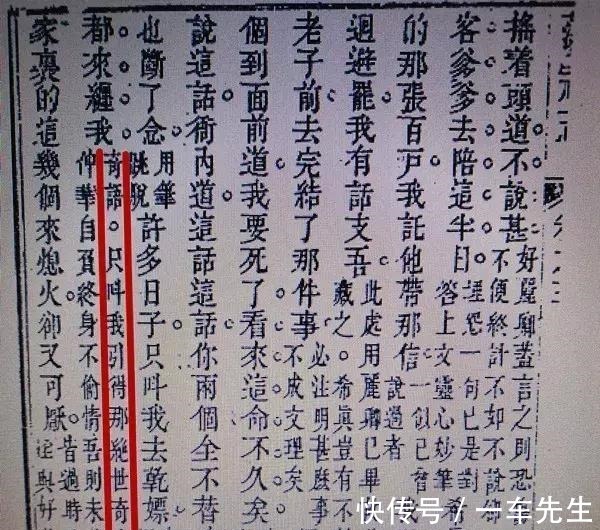 搖着頭道不說甚好麗卿蓋言之則恐
不便終計不如不說卻
客爹爹去陪這半日埋怨一句已是對
答上文靈心妙筆希
的那張百戶我託他帶那信說過者
一似已曾
迴避罷我有話支吾此處用麗卿已畢
藏之。希眞豈有不
老子前去完結了那件事必注明甚麼事
不成文理矣
個到面前道我要死了看來這命不久矣
說這話衙內道這話這話你兩個全不替
也斷了念用筆
跳脫許多日子只呌我去乾嫖
都來纏我奇語。只呌我引得那絕世奇
仲華自負終身不偷情吾則未
家裏的這幾個來熄火卻又可厭昔過時
淫與好
快传号/一车先生